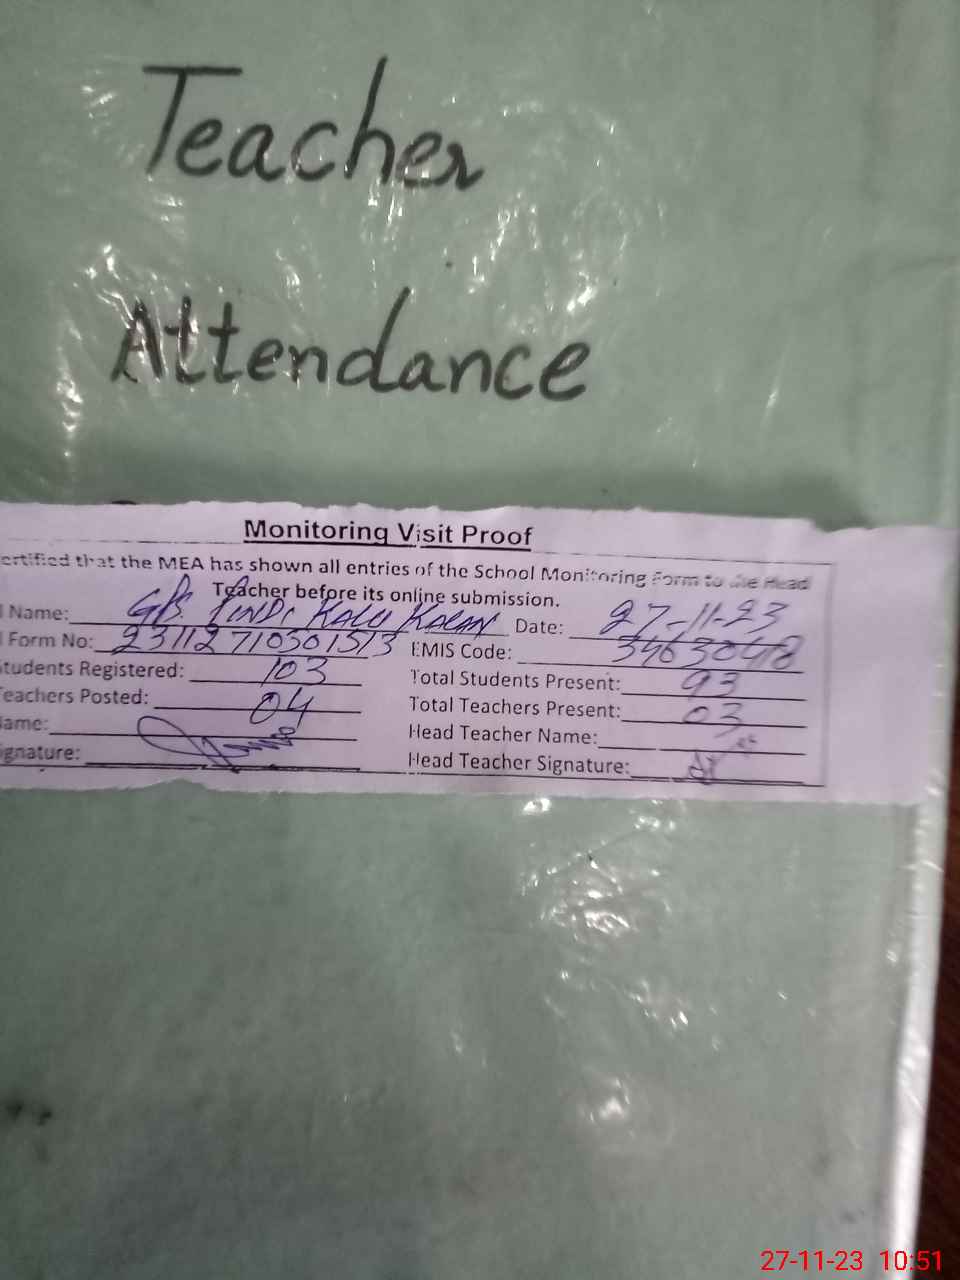 Teacher
Attendance
Monitoring Visit Proof
ertified that the MEA has shown all entries of the School Monitoring Form to the Head
Teacher before its online submission.
l Name: GPS. PINDI KALU KALAN Date: 27-11-23
l Form No: 23112710301513 EMIS Code:
Students Registered: 103 Total Students Present: 93
Teachers Posted: 04 Total Teachers Present: 03
ame: Head Teacher Name:
ignature: Head Teacher Signature:
27-11-23 10:51